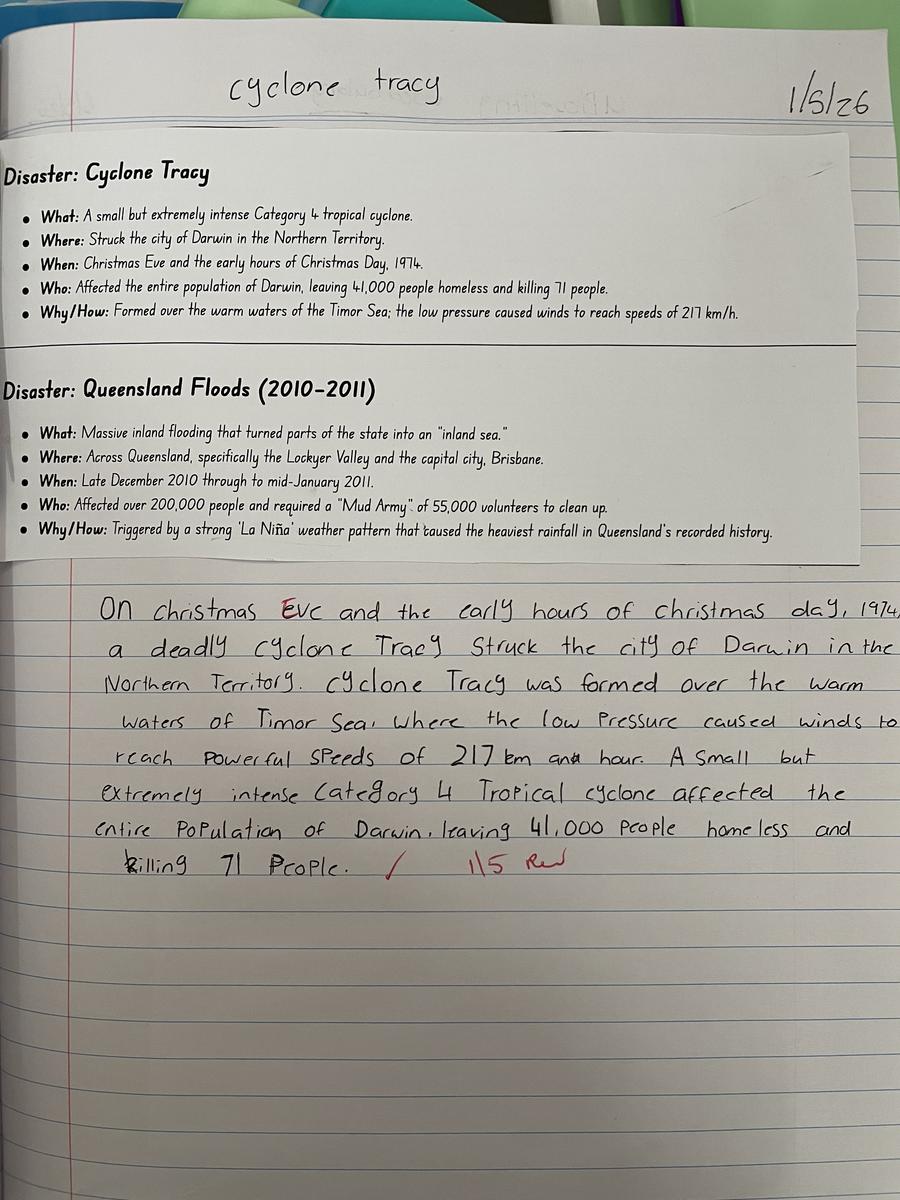 cyclone tracy
1/5/26
Disaster: Cyclone Tracy
• What: A small but extremely intense Category 4 tropical cyclone.
• Where: Struck the city of Darwin in the Northern Territory.
• When: Christmas Eve and the early hours of Christmas Day, 1974.
• Who: Affected the entire population of Darwin, leaving 41,000 people homeless and killing 71 people.
• Why/How: Formed over the warm waters of the Timor Sea; the low pressure caused winds to reach speeds of 217 km/h.
Disaster: Queensland Floods (2010-2011)
• What: Massive inland flooding that turned parts of the state into an "inland sea."
• Where: Across Queensland, specifically the Lockyer Valley and the capital city, Brisbane.
• When: Late December 2010 through to mid-January 2011.
• Who: Affected over 200,000 people and required a "Mud Army" of 55,000 volunteers to clean up.
• Why/How: Triggered by a strong 'La Niña' weather pattern that caused the heaviest rainfall in Queensland's recorded history.
On christmas Eve and the early hours of christmas day, 1974,
a deadly cyclone Tracy Struck the city of Darwin in the
Northern Territory. cyclone Tracy was formed over the warm
waters of Timor Sea, where the low Pressure caused winds to
reach powerful speeds of 217 km an hour. A small but
extremely intense Category 4 Tropical cyclone affected the
entire Population of Darwin, leaving 41,000 people homeless and
killing 71 People. / 1/5